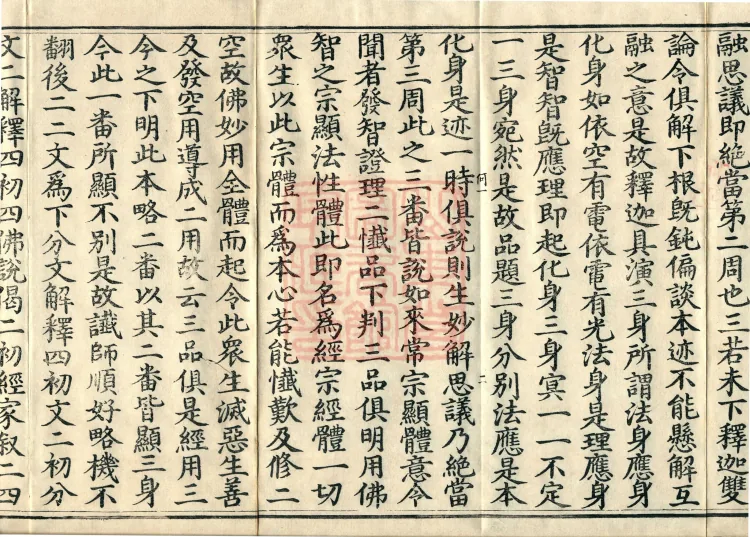 融思議即絶當第二周也三若未下釋迦雙
論令俱解下根旣鈍偏談本迹不能懸解互
融之意是故釋迦具演三身所謂法身應身
化身如依空有電依電有光法身是理應身
是智智旣應理即起化身三身冥一一不定
一三身宛然是故品題三身分別法應是本
化身是迹一時俱說則生妙解思議乃絶當
第三周此之三番皆說如來常宗顯體意今
聞者發智證理二懺品下判三品俱明用佛
智之宗顯法性體此即名爲經宗經體一切
衆生以此宗體而爲本心若能懺歎及修二
空故佛妙用全體而起令此衆生滅惡生善
及發空用導成二用故云三品俱是經用三
今之下明此本略二番以其二番皆顯三身
今此一番所顯不別是故讖師順好略機不
翻後二二文爲下分文解釋四初文二初分
文二解釋四初四佛說偈二初經家叙二四
何